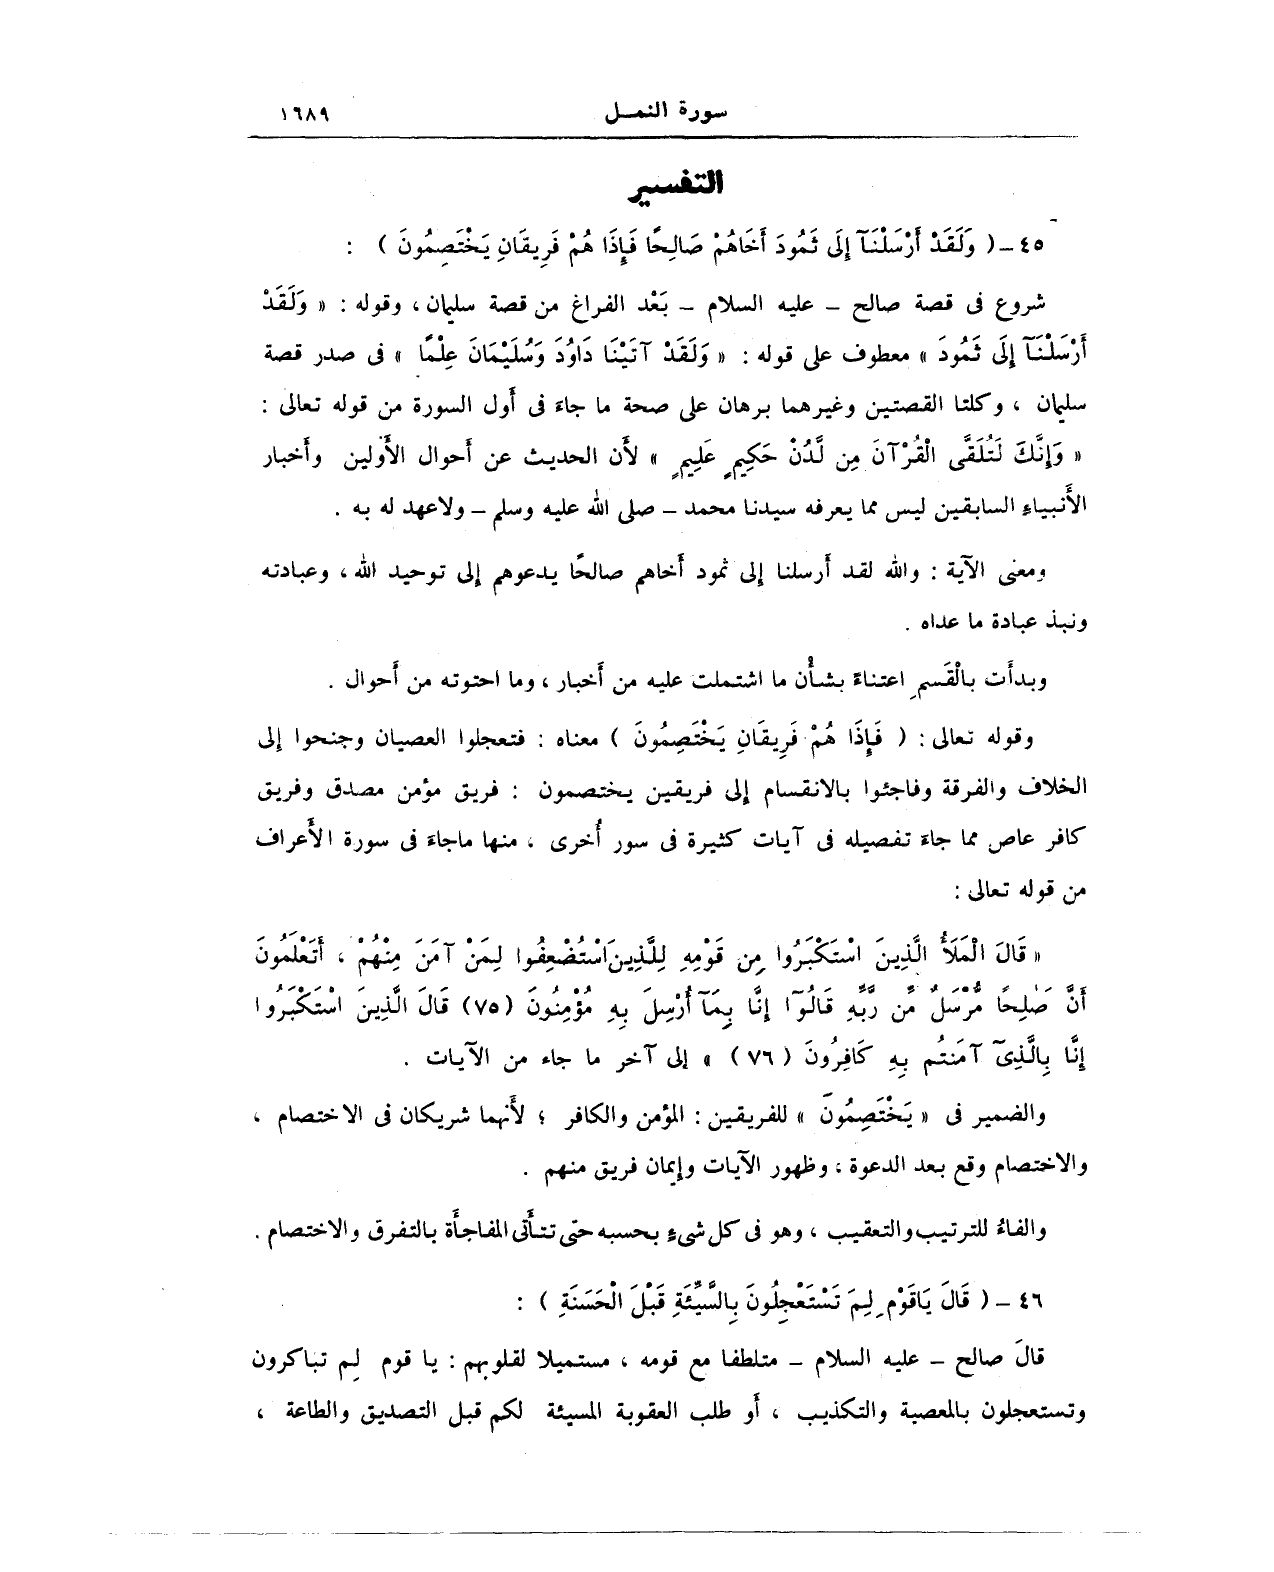 سورة النمـل ١٦٨٩
التفسير
٤٥ - ( وَلَقَدْ أَرْسَلْنَآ إِلَى ثَمُودَ أَخَاهُمْ صَالِحًا فَإِذَا هُمْ فَرِيقَانِ يَخْتَصِمُونَ ) :
شروع فى قصة صالح - عليه السلام - بَعْد الفراغ من قصة سليمان ، وقوله : « وَلَقَدْ
أَرْسَلْنَآ إِلَى ثَمُودَ » معطوف على قوله : « وَلَقَدْ آتَيْنَا دَاوُدَ وَسُلَيْمَانَ عِلْمًا » فى صدر قصة
سليمان ، وكلتا القصتين وغيرهما برهان على صحة ما جاءَ فى أول السورة من قوله تعالى :
« وَإِنَّكَ لَتُلَقَّى الْقُرْآنَ مِن لَّدُنْ حَكِيمٍ عَلِيمٍ » لأن الحديث عن أحوال الأَولين وأَخبار
الأَنبياءِ السابقين ليس مما يعرفه سيدنا محمد - صلى الله عليه وسلم - ولاعهد له به .
ومعنى الآية : والله لقد أرسلنا إلى ثمود أخاهم صالحًا يدعوهم إلى توحيد الله ، وعبادته
ونبذ عبادة ما عداه .
وبدأَت بالْقَسمِ اعتناءً بشأْن ما اشتملت عليه من أَخبار ، وما احتوته من أَحوال .
وقوله تعالى : ( فَإِذَا هُمْ فَرِيقَانِ يَخْتَصِمُونَ ) معناه : فتعجلوا العصيان وجنحوا إلى
الخلاف والفرقة وفاجئوا بالانقسام إلى فريقين يختصمون : فريق مؤمن مصدق وفريق
كافر عاص مما جاءَ تفصيله فى آيات كثيرة فى سور أُخرى ، منها ماجاءَ فى سورة الأَعراف
من قوله تعالى :
« قَالَ الْمَلَأُ الَّذِينَ اسْتَكْبَرُوا مِن قَوْمِهِ لِلَّذِينَ اسْتُضْعِفُوا لِمَنْ آمَنَ مِنْهُمْ ، أَتَعْلَمُونَ
أَنَّ صَٰلِحًا مُّرْسَلٌ مِّن رَّبِّهِ قَالُوٓا إِنَّا بِمَآ أُرْسِلَ بِهِ مُؤْمِنُونَ (٧٥) قَالَ الَّذِينَ اسْتَكْبَرُوا
إِنَّا بِالَّذِىٓ آمَنتُم بِهِ كَافِرُونَ ( ٧٦ ) » إلى آخر ما جاء من الآيات .
والضمير فى « يَخْتَصِمُونَ » للفريقين : المؤمن والكافر ؛ لأَنهما شريكان فى الاختصام ،
والاختصام وقع بعد الدعوة ، وظهور الآيات وإيمان فريق منهم .
والفاءُ للترتيب والتعقيب ، وهو فى كل شىءٍ بحسبه حتى تتأَتى المفاجأَة بالتفرق والاختصام .
٤٦ - ( قَالَ يَاقَوْمِ لِمَ تَسْتَعْجِلُونَ بِالسَّيِّئَةِ قَبْلَ الْحَسَنَةِ ) :
قالَ صالح - عليه السلام - متلطفا مع قومه ، مستميلا لقلوبهم : يا قوم لِم تباكرون
وتستعجلون بالمعصية والتكذيب ، أَو طلب العقوبة المسيئة لكم قبل التصديق والطاعة ،